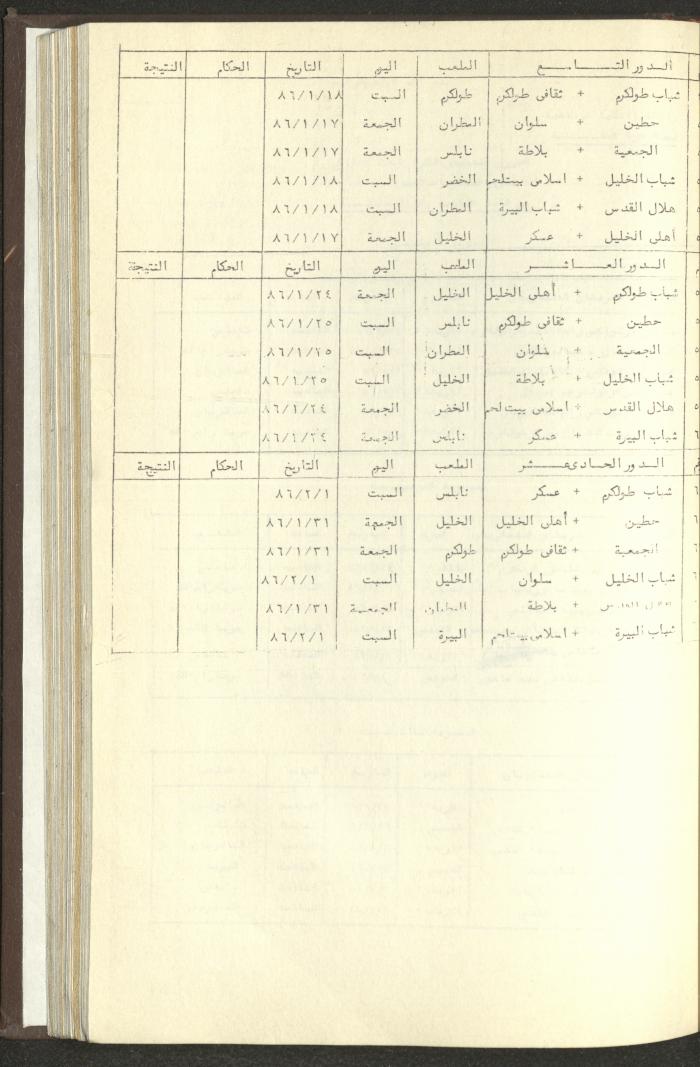 الدور التاسع الملعب اليوم التاريخ الحكام النتيجة
شباب طولكرم + ثقافي طولكرم طولكرم السبت ٨٦/١/١٨
حطين + سلوان المطران الجمعة ٨٦/١/١٧
الجمعية + بلاطة نابلس الجمعة ٨٦/١/١٧
شباب الخليل + اسلامي بيتلحم الخضر السبت ٨٦/١/١٨
هلال القدس + شباب البيرة المطران السبت ٨٦/١/١٨
أهلى الخليل + عسكر الخليل الجمعة ٨٦/١/١٧
الدور العاشر الملعب اليوم التاريخ الحكام النتيجة
شباب طولكرم + أهلى الخليل الخليل الجمعة ٨٦/١/٢٤
حطين + ثقافى طولكرم نابلس السبت ٨٦/١/٢٥
الجمعية + سلوان المطران السبت ٨٦/١/٢٥
شباب الخليل + بلاطة الخليل السبت ٨٦/١/٢٥
هلال القدس + اسلامى بيت لحم الخضر الجمعة ٨٦/١/٢٤
شباب البيرة + عسكر نابلس الجمعة ٨٦/١/٢٤
الدور الحادى عشر الملعب اليوم التأريخ الحكام النتيجة
شباب طولكرم + عسكر نابلس السبت ٨٦/٢/١
حطين + أهلى الخليل الخليل الجمعة ٨٦/١/٣١
الجمعية + ثقافى طولكرم طولكرم الجمعة ٨٦/١/٣١
شباب الخليل + سلوان الخليل السبت ٨٦/٢/١
+ بلاطة المطران الجمعية ٨٦/١/٣١
شباب البيرة + اسلامى بيتلحم البيرة السبت ٨٦/٢/١